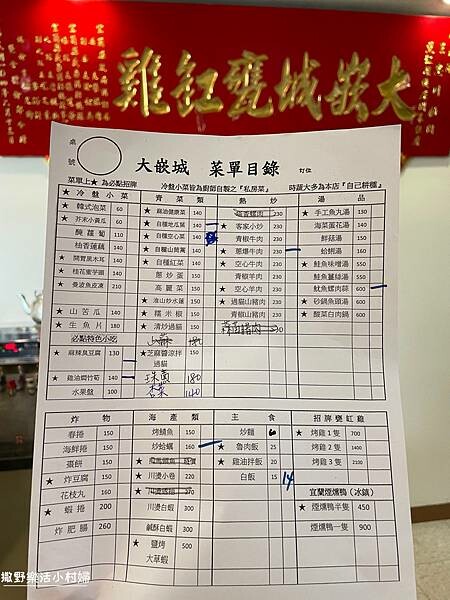 大嵌城甕缸雞
桌號
大嵌城 菜單目錄 訂位
菜單上★為必點招牌 冷盤小菜皆為廚師自製之『私房菜』 時蔬大多為本店『自己耕種』
冷盤小菜
★ 韓式泡菜 60
★ 芥末小黃瓜 60
醃蘿蔔 110
柚香蓮藕 140
★ 開胃黑木耳 140
★ 桂花蜜芋頭 140
★ 曼波魚皮凍 210
★ 山苦瓜 140
★ 生魚片 180
必點特色小吃
★ 麻辣臭豆腐 130
★ 雞油燜竹筍 140
水果盤 100
青菜類
★ 麻油健康菜 140
★ 自種地瓜葉 140
★ 自種空心菜 140
★ 自種山茼蒿 140
★ 自種紅菜 140
蔥炒蛋 140
高麗菜 140
★ 淮山炒水蓮 150
★ 糯米椒 150
★ 清炒過貓 150
山蘇 180
★ 芝麻醬涼拌過貓 150
珠蔥 180
杏菜 140
熱炒
塔香螺肉 230
★ 客家小炒 230
青椒牛肉 230
★ 蔥爆牛肉 230
★ 空心牛肉 230
青椒羊肉 230
★ 空心羊肉 230
★ 過貓山豬肉 230
青椒山豬肉 230
湯品
★ 手工魚丸湯 130
海菜蛋花湯 140
鮮菇湯 140
★ 蛤蜊湯 160
★ 鮭魚味噌湯 550
★ 鮭魚薑絲湯 550
★ 魷魚螺肉蒜 600
★ 砂鍋魚頭湯 600
★ 酸菜白肉鍋 600
炸物
春捲 150
海鮮捲 150
棗餅 150
★ 炸豆腐 150
花枝丸 160
★ 蝦捲 200
炸肥腸 260
海產類
烤鯖魚 150
★ 炒蛤蠣 160
★ 川燙小卷 220
★ 川燙透抽 370
川燙白蝦 300
鹹酥白蝦 300
★ 鹽烤大草蝦 500
主食
炒麵 60
★ 魯肉飯 25
★ 雞油拌飯 20
白飯 15 14
招牌甕缸雞
★ 烤雞1隻 700
★ 烤雞2隻 1400
★ 烤雞3隻 2100
宜蘭煙燻鴨(冰鎮)
★ 煙燻鴨半隻 450
★ 煙燻鴨一隻 900
撒野樂活小村婦